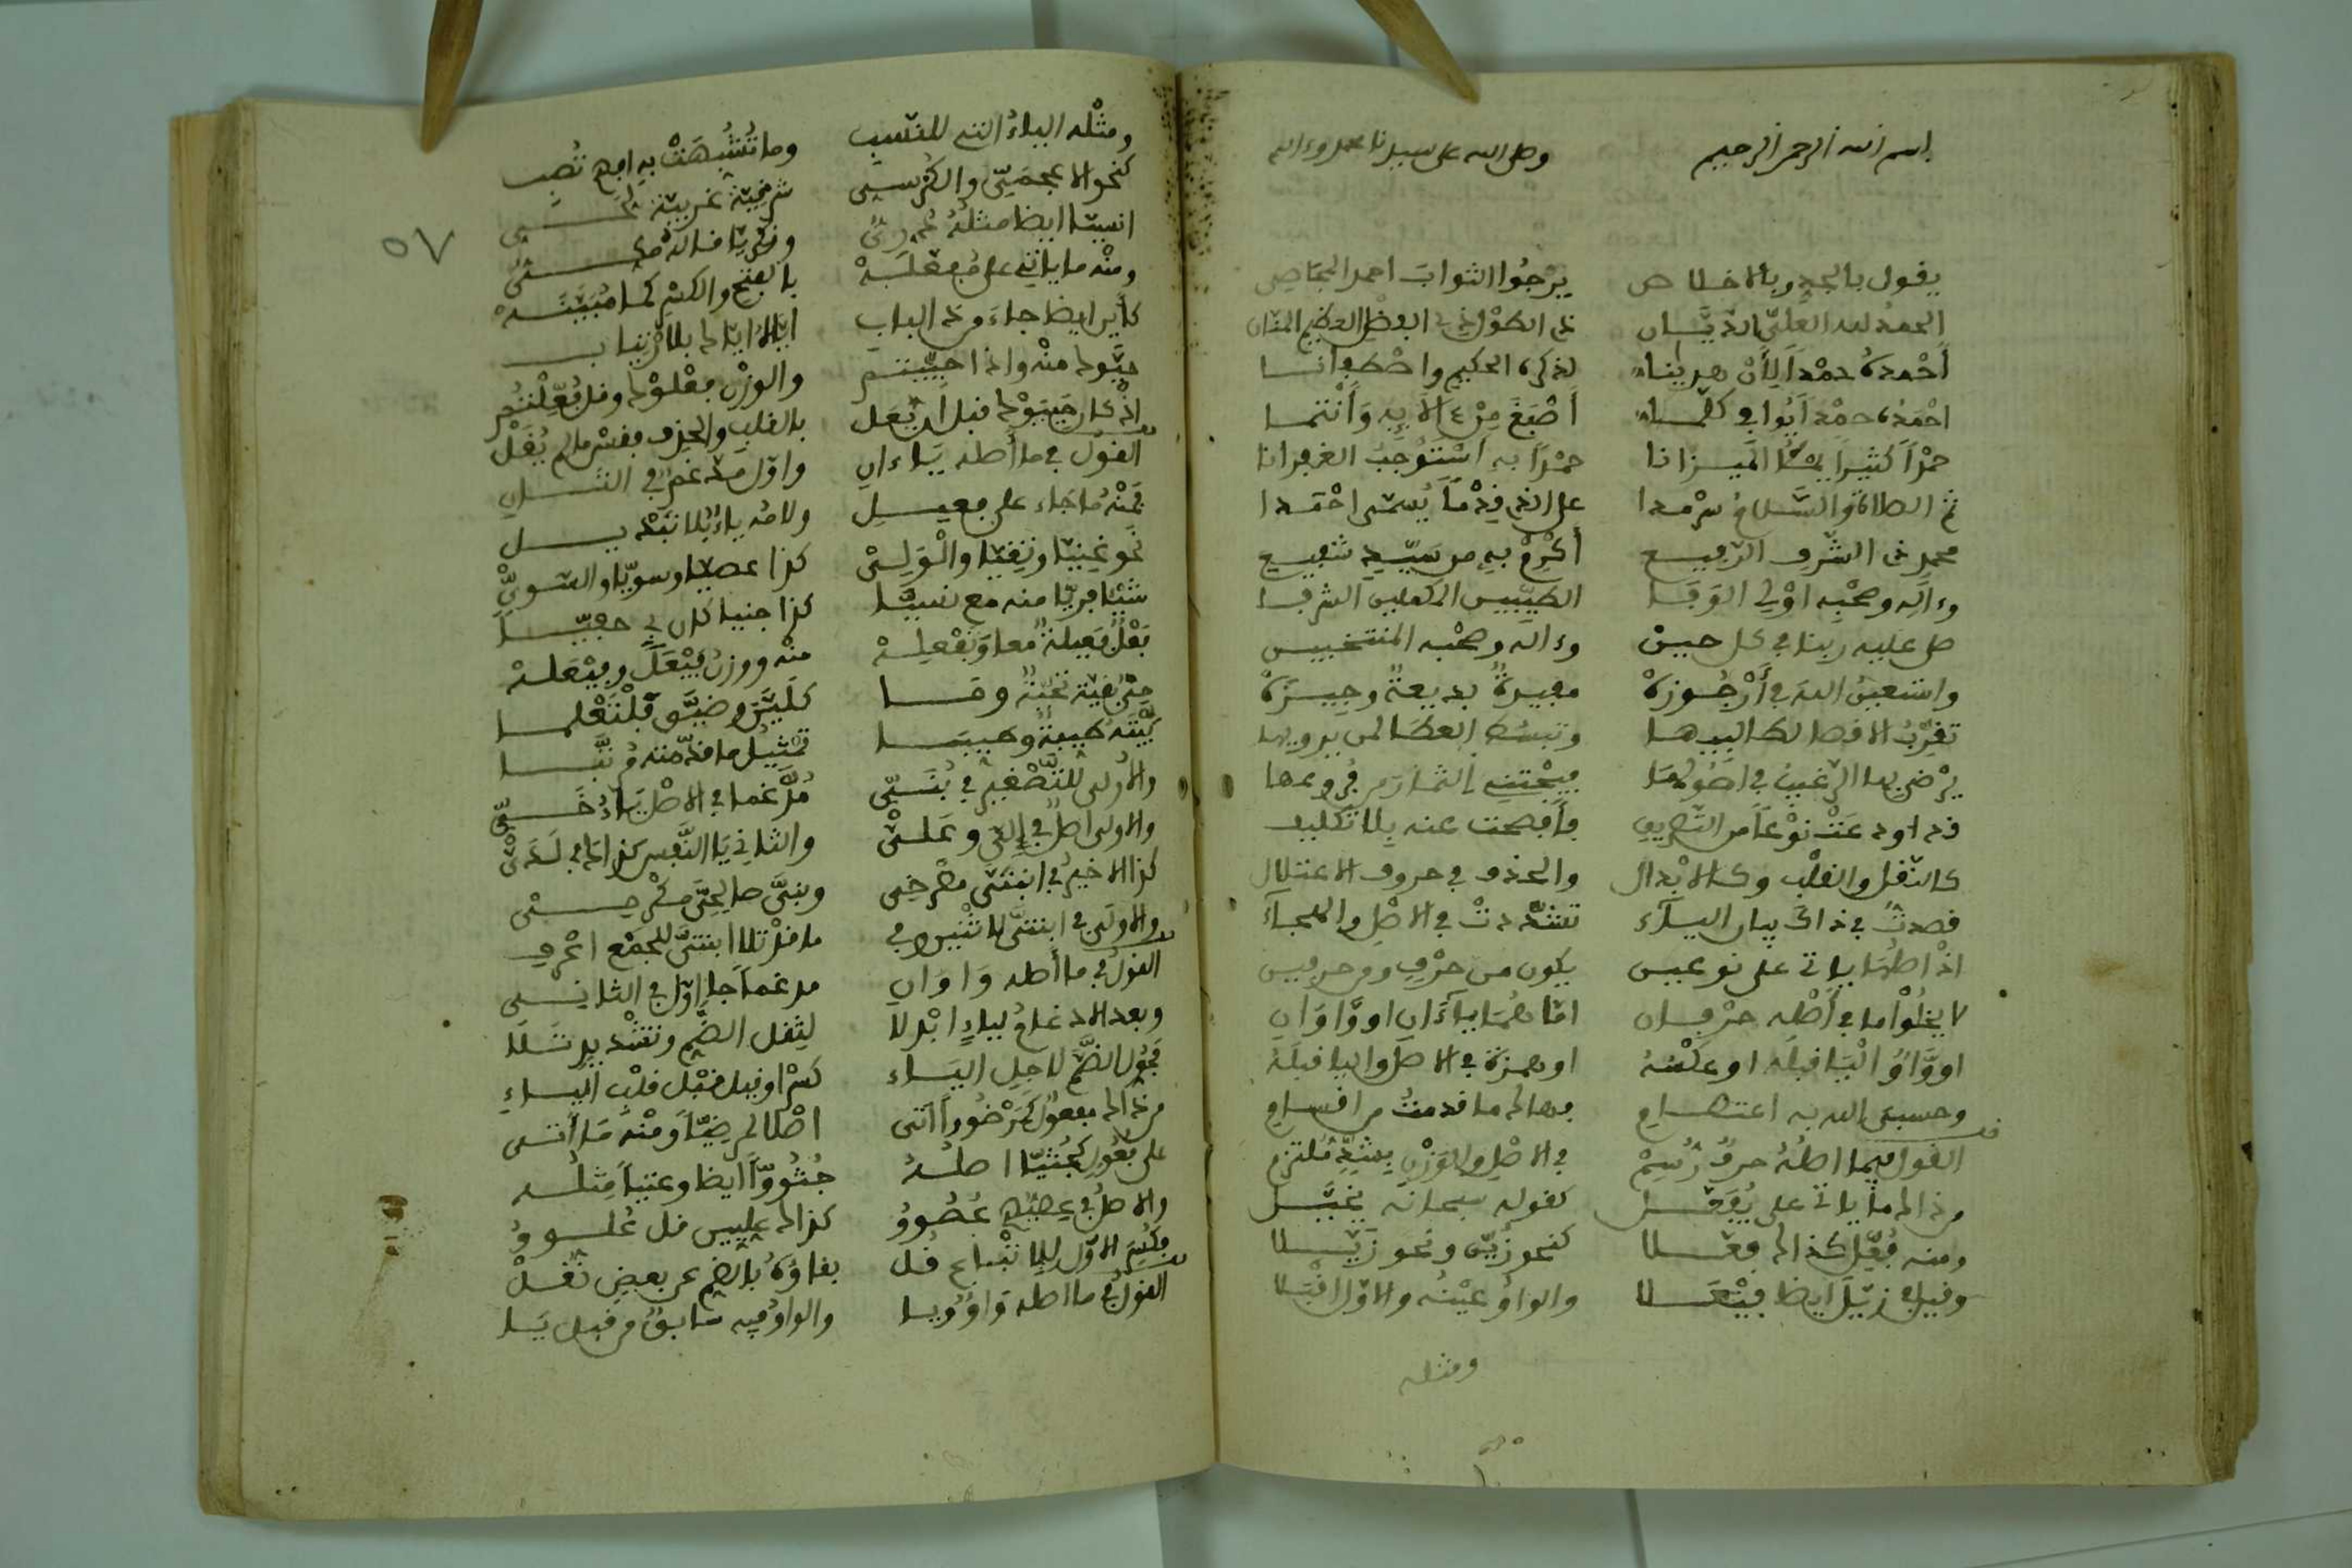 بسم الله الرحمن الرحيم وصلى الله على سيدنا محمد وءاله
يقول بالجد وبالاخلاص يرجوا الثواب احمد الجصاصي
الحمد لله العلي الديان ذي الطول ذي الفضل العظيم المنان
أحمده حمدا لأن هدينا لذكره الحكيم واصطفانا
احمده حمدا يوافي كلما أصبغ من ءالايه وأنتما
حمدا كثيرا يملأ الميزانا حمدا به أستوجب الغفرانا
ثم الصلاة والسلام سرمدا على الذي قدما يسمى احمدا
محمد ذي الشرف الرفيع أكرم به من سيد شفيع
وءاله وصحبه اولي الوفا الطيبين الكملين الشرفا
صلى عليه ربنا في كل حين وءاله وصحبه المنتخبين
واستعين الله في أرجوزة مفيدة بديعة وجيزة
تقرب الاقصا لطالبيها وتبسط العطا لمن يرويها
يرضى بها الراغب في اصولها فيجتني الثمار من فروعها
قد اودعت نوعا من التصريف فأفصحت عنه بلا تكليف
كالنقل والقلب وكالابدال والحذف في حروف الاعتلال
قصدت في ذاك بيان الياء تشددت في الاصل والهجاء
اذ اصلها ياتي على نوعين يكون من حرف ومن حرفين
لا يخلوا ما في أصله حرفان اما هما ياءان او واوان
او واو اليا قبله او عكسه او همزة في الاصل واليا قبله
وحسبي الله به اعتصام فهاك ما قدمت من اقسام
القول فيما اصله حرف رسم في الاصل والوزن بشد ملتزم
من ذاك ما ياتي على يفعل كقوله سبحانه يخيل
ومنه فعل كذاك فعلا كنحو زين ونحو زيلا
وقيل زيل ايضا فيعلا والواو عينه والاول اقبلا
ومثله
ومثله الياء التي للنسب وما تشبهت به افهم تصب
كنحو الاعجمي والكرسي شرقية غربية
انسيا ايضا مثله دري
ومنه ما ياتي على مفعلة بالفتح والكسر كما مبينة
كأين ايضا جاء من ذا الباب اياك بلا ارتياب
حيوك منه واذا حييتم والوزن فعلوك وقل فعلتم
اذ كان حييوك قبل أن يعل بالقلب والحذف فقس ما لم يقل
القول في ما أصله ياءان واول مدغم في الثان
فمنه ما جاء على فعيل ولامه ياء بلا تبديل
نحو غنيا وتقيا والولي كذا عصيا وسويا والسوي
شيئا فريا منه مع نسيا كذا جنيا كان بي حفيا
بقل فعيلة معا وتفعلة منه ووزن فيعل وفيعلة
حتى بقية تحية وما كلين وضيق فلتعلما
بينة طيبة وطيبا تمثيل ما قدمته مرتبا
والاولى للتصغير في بني مدغما في الاصل ياء خفي
والاولى اصل في إلي وعلي والثاني يا النفس كذاك في لدي
كذا الاخير في ابنتي مصرخي وبني صالحي مكرمي
والاولى في ابنتي لاثنين في ما قد تلا ابنتي للجمع اعرف
القول في ما أصله واوان مدغما جا اول في الثاني
وبعد الادغام لياء ابدلا لثقل الضم وتشديد تلا
فحول الضم لاجل الياء كسرا وقيل قبل قلب الياء
من ذاك مفعول كمرضووا أتى اصلا لمرضيا ومنه ما أتى
على فعول كجثيا اصله جثووا ايضا وعتيا مثله
والاصل في عصيهم عصوو كذاك عليين قل علوو
وكسر الاول للاتباع قل بقاؤه بالضم عن بعض نقل
القول في ما اصله واو ويا والواو فيه سابق من قبل يا
٥٧